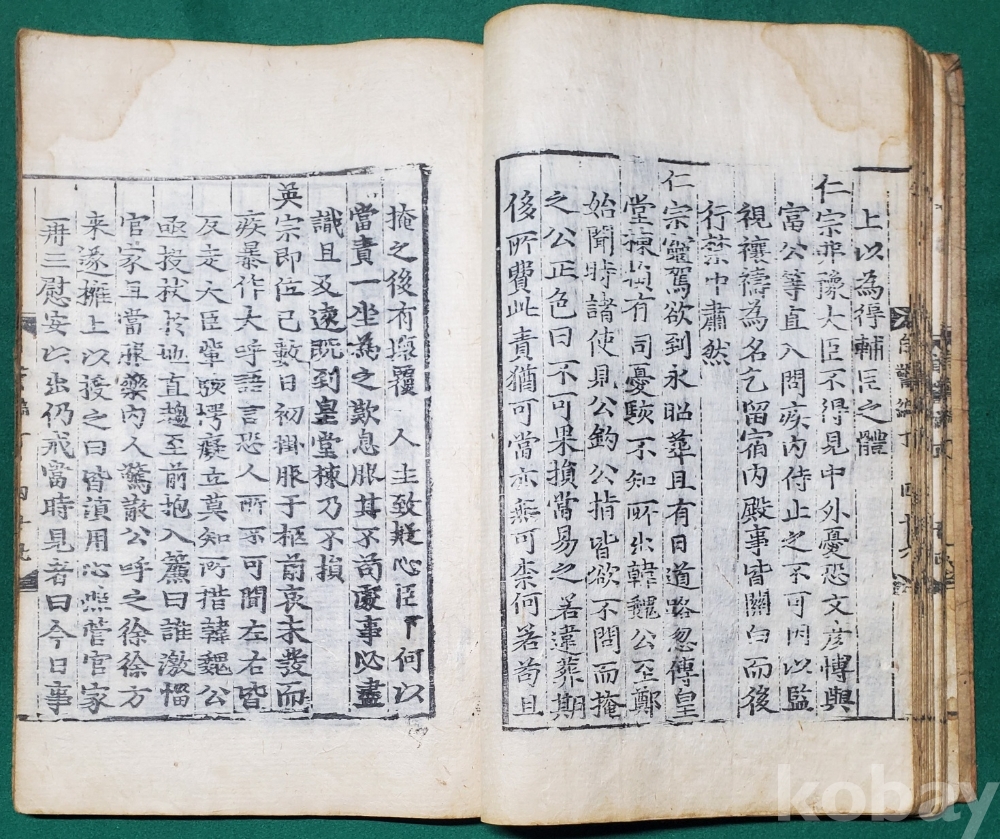 上以為得輔臣之體
仁宗非豫大臣不得見中外憂恐文彦愽與
富公等直入問疾内侍止之不可因以監
視禳禱為名乞留宿内殿事皆關白而後
行禁中肅然
仁宗靈駕欲到永昭葬且有日道路忽傳皇
堂棟損有司憂駭不知所出韓魏公至鄭
始聞時諸使見公鈞公指皆欲不問而掩
之公正色曰不可果損當易之若違葬期
侈所費此責猶可當亦無可柰何若苟且
掩之後有壞覆人主致疑心臣下何以
當責一坐為之歎息服其不苟處事必盡
識且及遠既到皇堂棟乃不損
英宗即位已數日初掛服于柩前哀未發而
疾暴作大呼語言恐人所不可聞左右皆
反走大臣輩駭愕癡立莫知所措韓魏公
亟投杖於地直趨至前抱入簾曰誰激惱
官家且當服藥内人驚散公呼之徐徐方
来遂擁上以授之曰皆須用心照管官家
再三慰安以出仍戒當時見者曰今日事
kobay